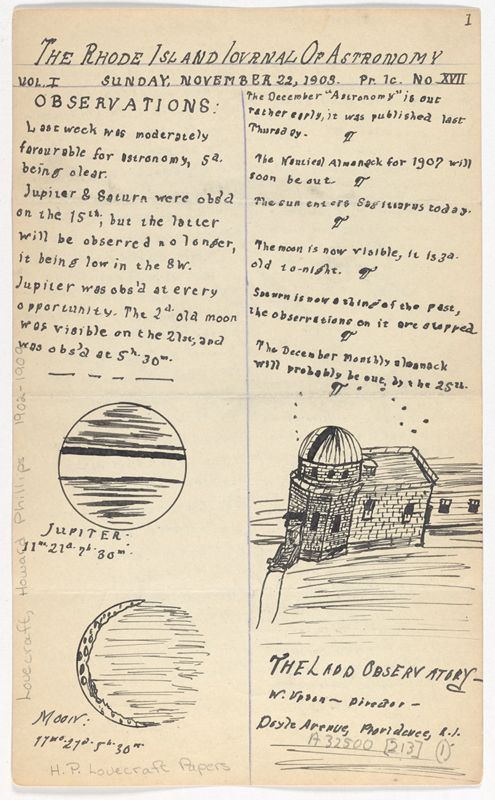 1
THE RHODE ISLAND JOURNAL OF ASTRONOMY
VOL. I SUNDAY, NOVEMBER 22, 1903. Pr. 1c. No XVII
OBSERVATIONS:
Last week was moderately
favourable for astronomy, 5d.
being clear.
Jupiter & Saturn were obs'd
on the 15th, but the latter
will be observed no longer,
it being low in the SW.
Jupiter was obs'd at every
opportunity. The 2d. old moon
was visible on the 21st, and
was obs'd at 5h. 30m.
JUPITER:
11mo. 21d. 7h. 30m.
MOON:
11mo. 21d. 5h. 30m.
The December "Astronomy" is out
rather early, it was published last
Thursday. ¶
The Nautical Almanack for 1907 will
soon be out ¶
The sun enters Sagittarus today.
¶
The moon is now visible, it is 3d.
old to-night. ¶
Saturn is now a thing of the past,
the observations on it are stopped
¶
The December Monthly almanack
will probably be out, by the 25th.
¶
THE LADD OBSERVATORY
W. Upton — Director —
Doyle Avenue, Providence, R.I.
A 32500 [213] (1)
Lovecraft, Howard Phillips 1902-1909
H. P. Lovecraft Papers